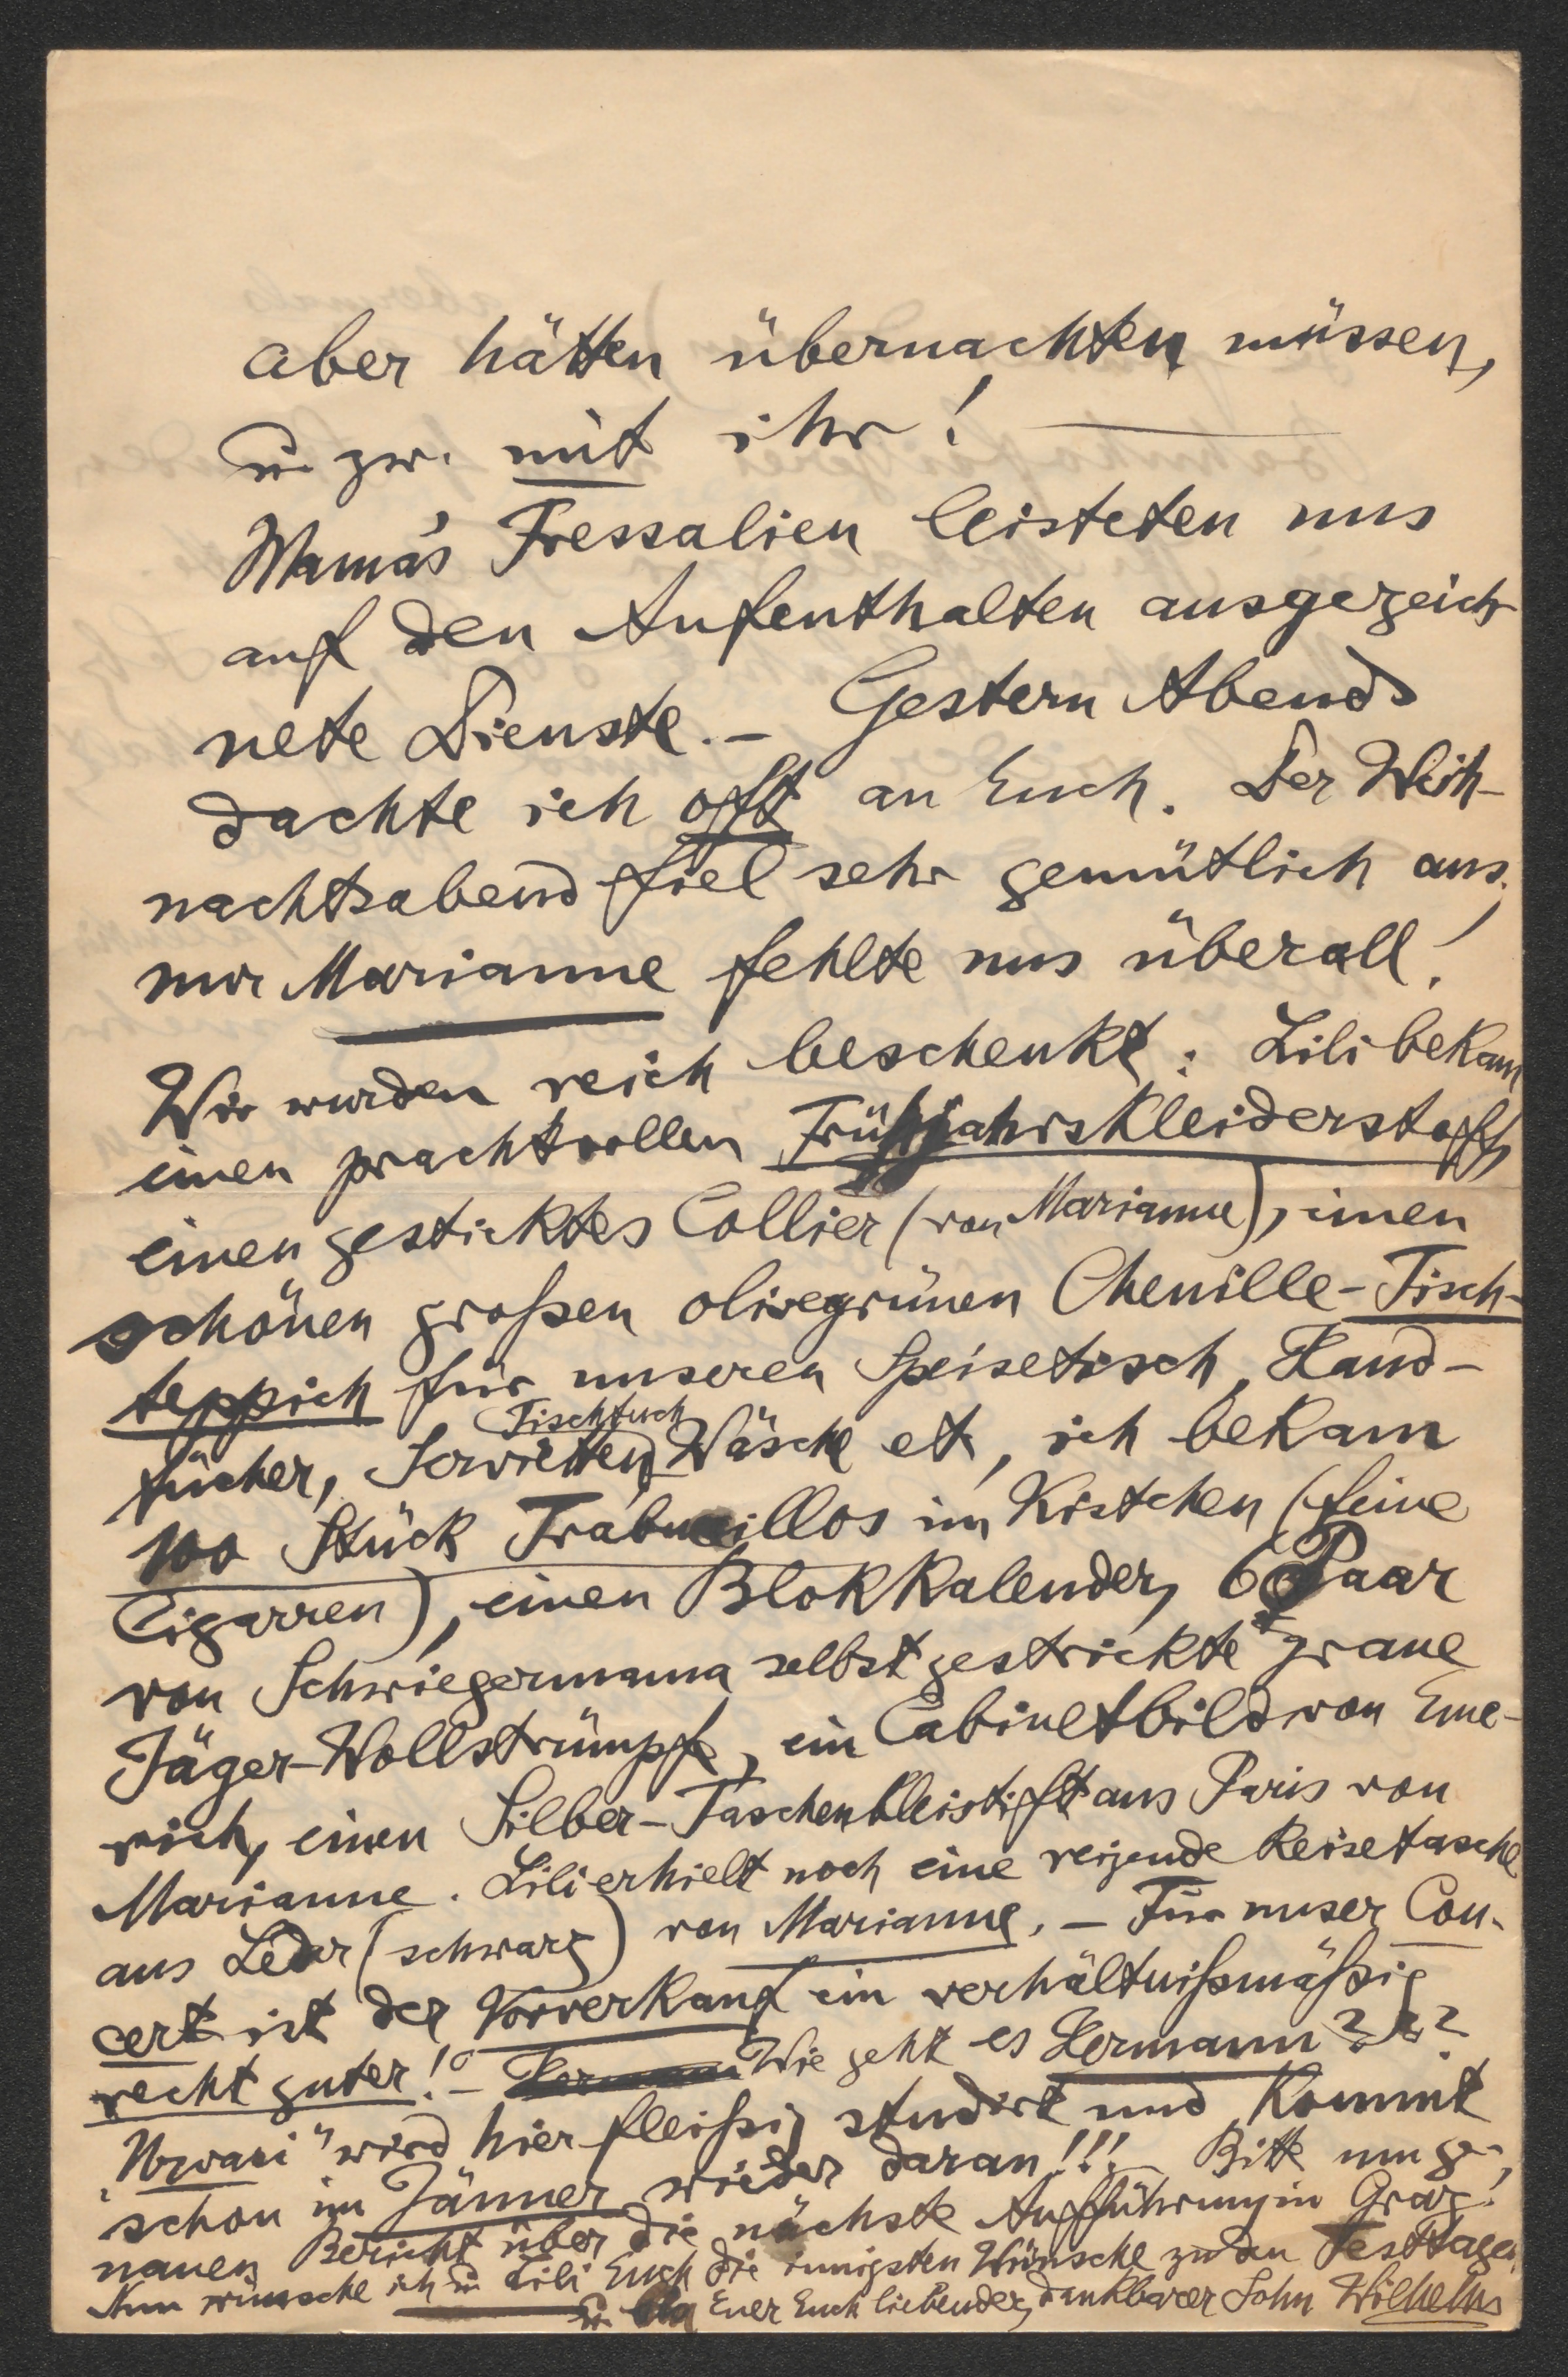 aber hätten übernachten müssen,
u. zw. mit ihr! —
Mama's Fressalien leisteten uns
auf den Aufenthalten ausgezeich-
nete Dienste. – Gestern Abends
dachte ich oft an Euch. Der Weih-
nachtsabend fiel sehr gemütlich aus,
nur Marianne fehlte uns überall!
Wir wurden reich beschenkt: Lili bekam
einen prachtvollen Frühjahrskleiderstoff,
einen gesticktes Collier (von Marianne), einen
schönen großen olivegrünen Chenille-Tisch-
teppich für unseren Speisetisch, Hand-
tücher, Servietten, Tischtuch Wäsche et, ich bekam
100 Stück Trabucillos im Kistchen (feine
Cigarren), einen Blokkalender, 6 Paar
von Schwiegermama selbst gestrickte graue
Jäger-Wollstrümpfe, ein Cabinetbild von Eme-
rich, einen Silber-Taschenbleistift aus Paris von
Marianne. Lili erhielt noch eine reizende Reisetasche
aus Leder (schwarz) von Marianne. – Für unser Con-
cert ist der Vorverkauf ein verhältnißmäßig
recht guter! – Wie geht es Hermann???
"Urvasi" wird hier fleißig studirt und kommt
schon im Jänner wieder daran!!! – Bitte um ge-
nauen Bericht über die nächste Aufführung in Graz!
Nun wünsche ich u. Lili Euch die innigsten Wünsche zu den Festtagen
u. Euer Euch liebender, dankbarer Sohn Wilhelm